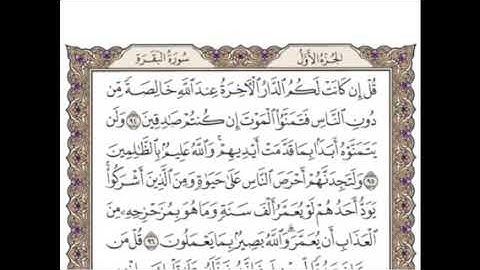 سُورَةُ البَقَرَةِ الجُزْءُ الأَوَّلُ
قُلْ إِن كَانَتْ لَكُمُ ٱلدَّارُ ٱلْـَٔاخِرَةُ عِندَ ٱللَّهِ خَالِصَةً مِّن
دُونِ ٱلنَّاسِ فَتَمَنَّوُا۟ ٱلْمَوْتَ إِن كُنتُمْ صَـٰدِقِينَ ٩٤ وَلَن
يَتَمَنَّوْهُ أَبَدًۢا بِمَا قَدَّمَتْ أَيْدِيهِمْ ۗ وَٱللَّهُ عَلِيمٌۢ بِٱلظَّـٰلِمِينَ
٩٥ وَلَتَجِدَنَّهُمْ أَحْرَصَ ٱلنَّاسِ عَلَىٰ حَيَوٰةٍ وَمِنَ ٱلَّذِينَ أَشْرَكُوا۟ ۚ
يَوَدُّ أَحَدُهُمْ لَوْ يُعَمَّرُ أَلْفَ سَنَةٍ وَمَا هُوَ بِمُزَحْزِحِهِۦ مِنَ
ٱلْعَذَابِ أَن يُعَمَّرَ ۗ وَٱللَّهُ بَصِيرٌۢ بِمَا يَعْمَلُونَ ٩٦ قُلْ مَن